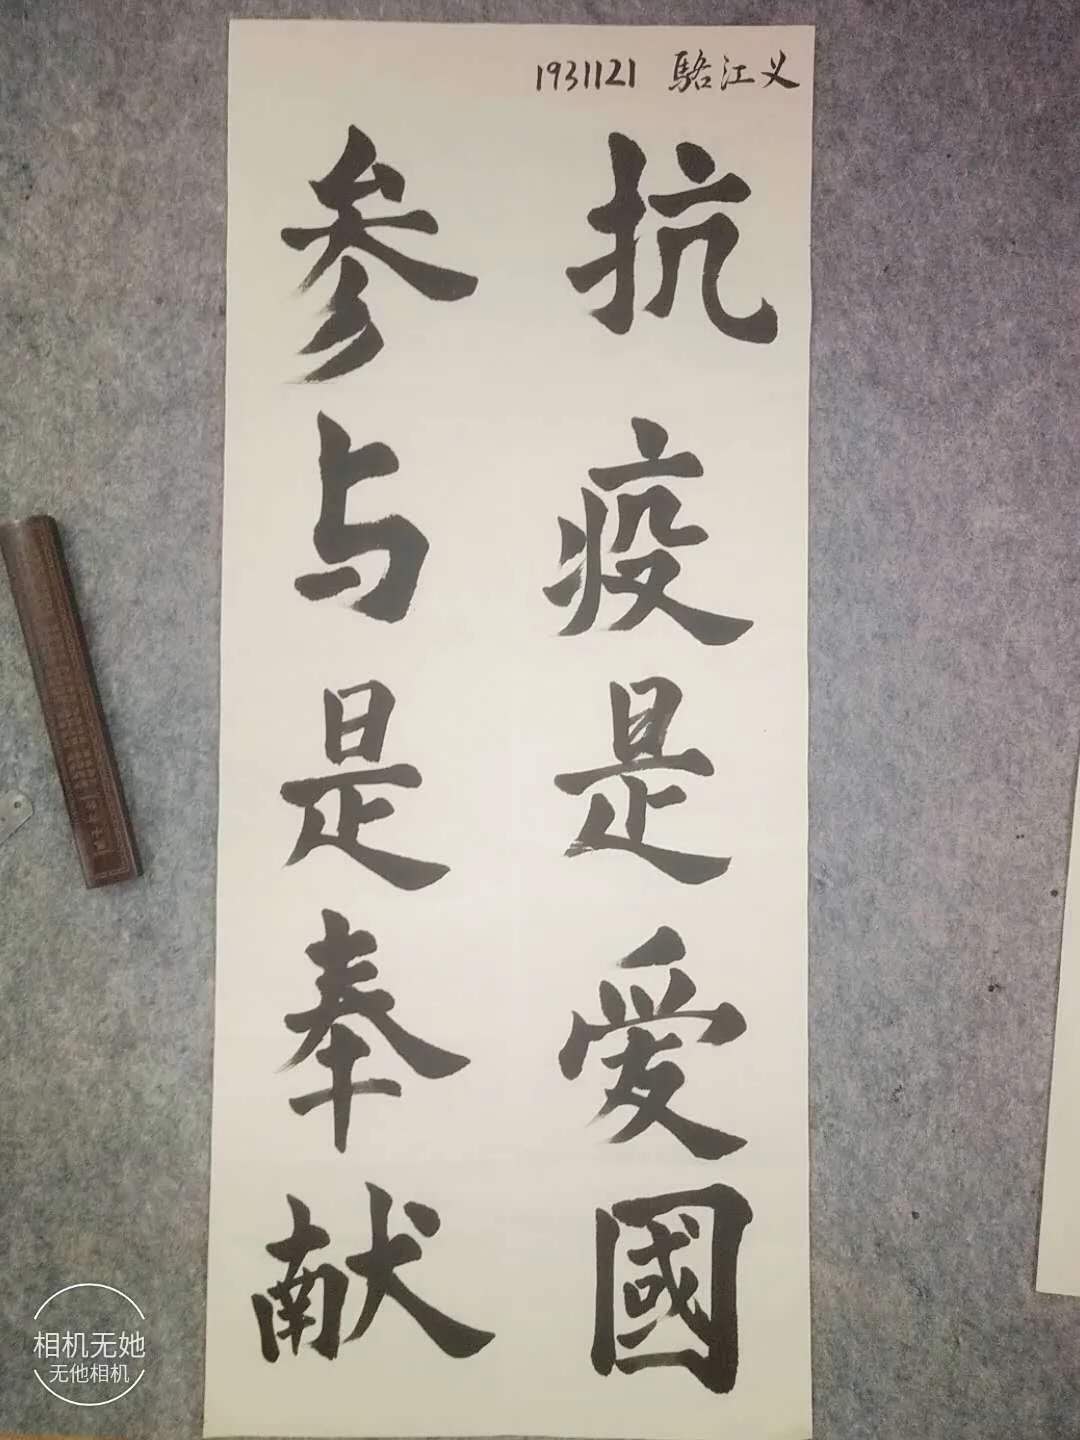 1931121 駱江义
抗疫是愛國
参与是奉献
相机无她
无他相机